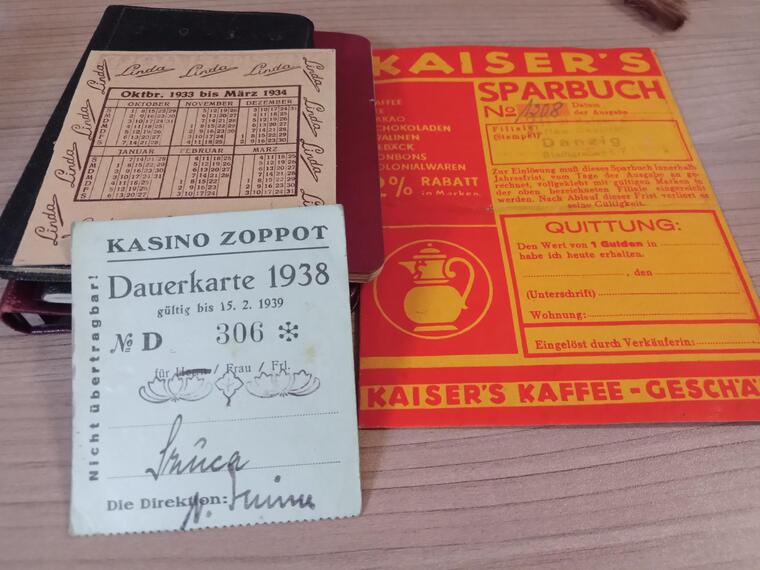 Linda Linda Linda Linda
Linda
Linda
Linda
Linda
Linda
Linda
Linda
Oktbr. 1933 bis März 1934
OKTOBER NOVEMBER DEZEMBER
JANUAR FEBRUAR MÄRZ
KASINO ZOPPOT
Dauerkarte 1938
gültig bis 15. 2. 1939
№ D 306
für Herrn / Frau / Frl.
Nicht übertragbar!
Die Direktion:
KAISER'S
SPARBUCH
No 1308 Datum
der Ausgabe
KAFFEE
TE
KAKAO
SCHOKOLADEN
PRALINEN
GEBÄCK
BONBONS
KOLONIALWAREN
2% RABATT
in Marken
Filiale:
(Stempel)
Danzig
Zur Einlösung muß dieses Sparbuch innerhalb
Jahresfrist, vom Tage der Ausgabe an ge-
rechnet, vollgeklebt mit gültigen Marken in
der oben bezeichneten Filiale eingereicht
werden. Nach Ablauf dieser Frist verliert es
seine Gültigkeit.
QUITTUNG:
Den Wert von 1 Gulden in
habe ich heute erhalten.
, den
(Unterschrift)
Wohnung:
Eingelöst durch Verkäuferin:
KAISER'S KAFFEE-GESCHÄ